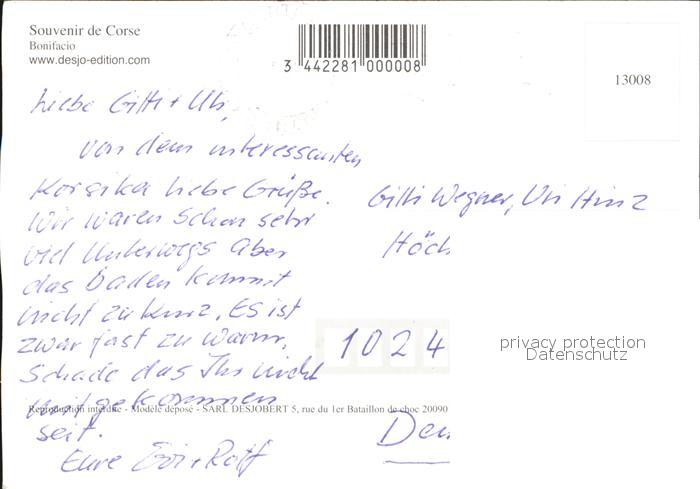 Souvenir de Corse
Bonifacio
www.desjo-edition.com
3 442281 000008
13008
Liebe Gitti + Uli,
von dem interessanten
Korsika liebe Grüße.
Wir waren schon sehr
viel Unterwegs aber
das Baden kommt
nicht zu kurz. ES ist
zwar fast zu warm.
Schade das Ihr nicht
mitgekommen
seit.
Eure + Rolf
Gitti Wegner, Uli Hinz
Höch
1024
privacy protection
Datenschutz
Reproduction interdite - Modèle déposé - SARL DESJOBERT 5, rue du 1er Bataillon de choc 20090
Deu